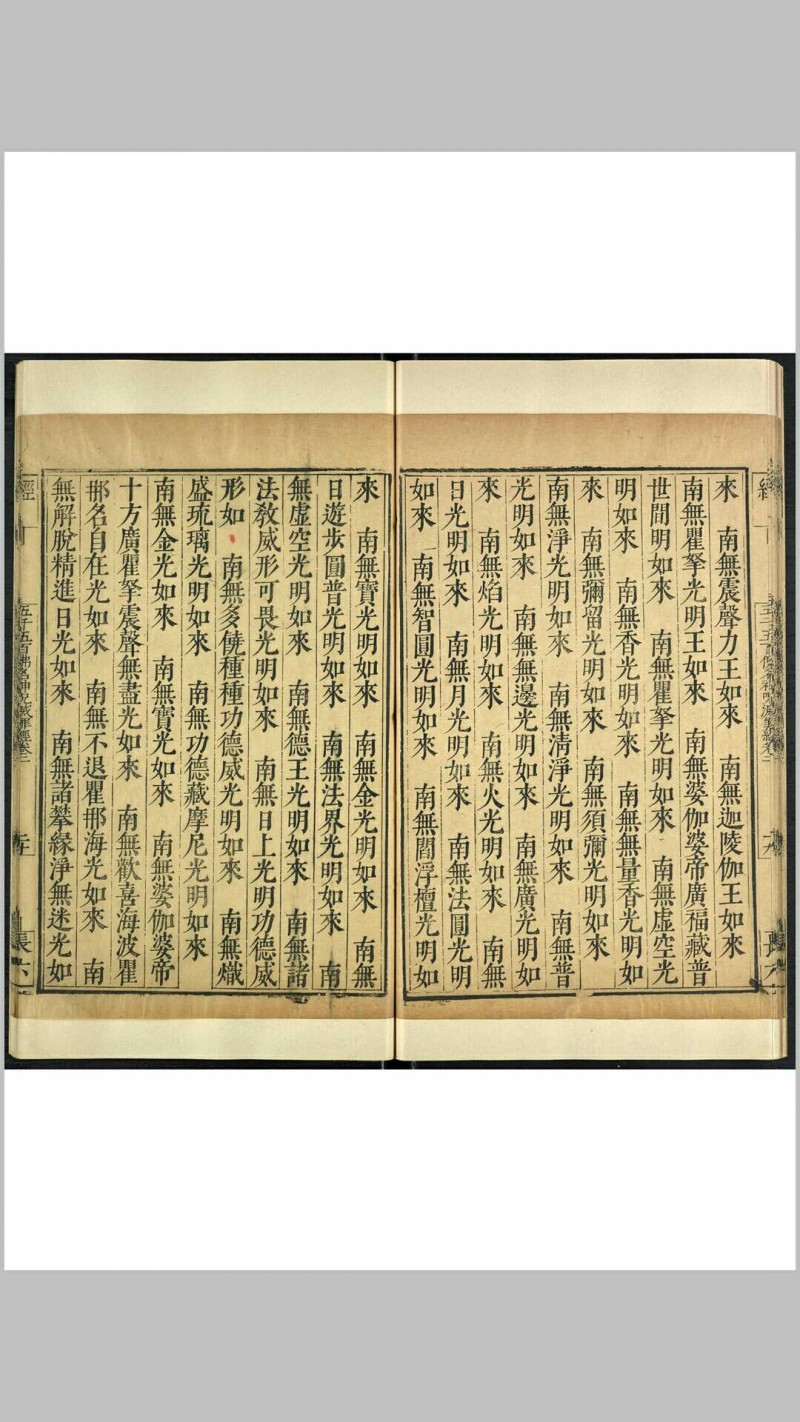 來　南無震聲力王如來　南無迦陵伽王如來
南無瞿拏光明王如來　南無婆伽婆帝廣福藏普
世間明如來　南無瞿拏光明如來　南無虛空光
明如來　南無香光明如來　南無無量香光明如
來　南無彌留光明如來　南無須彌光明如來
南無淨光明如來　南無清淨光明如來　南無普
光明如來　南無無邊光明如來　南無廣光明如
來　南無焰光明如來　南無火光明如來　南無
日光明如來　南無月光明如來　南無法圓光明
如來　南無智圓光明如來　南無閻浮檀光明如
來　南無寶光明如來　南無金光明如來　南無
日遊步圓普光明如來　南無法界光明如來　南
無虛空光明如來　南無德王光明如來　南無諸
法教威形可畏光明如來　南無日上光明功德威
形如　南無多饒種種功德威光明如來　南無熾
盛琉璃光明如來　南無功德藏摩尼光明如來
南無金光如來　南無寶光如來　南無婆伽婆帝
十方廣瞿拏震聲無盡光如來　南無歡喜海波瞿
那名自在光如來　南無不退瞿那海光如來　南
無解脫精進日光如來　南無諸攀緣淨無迷光如
經
五千五百佛名神呪除障滅罪經卷三